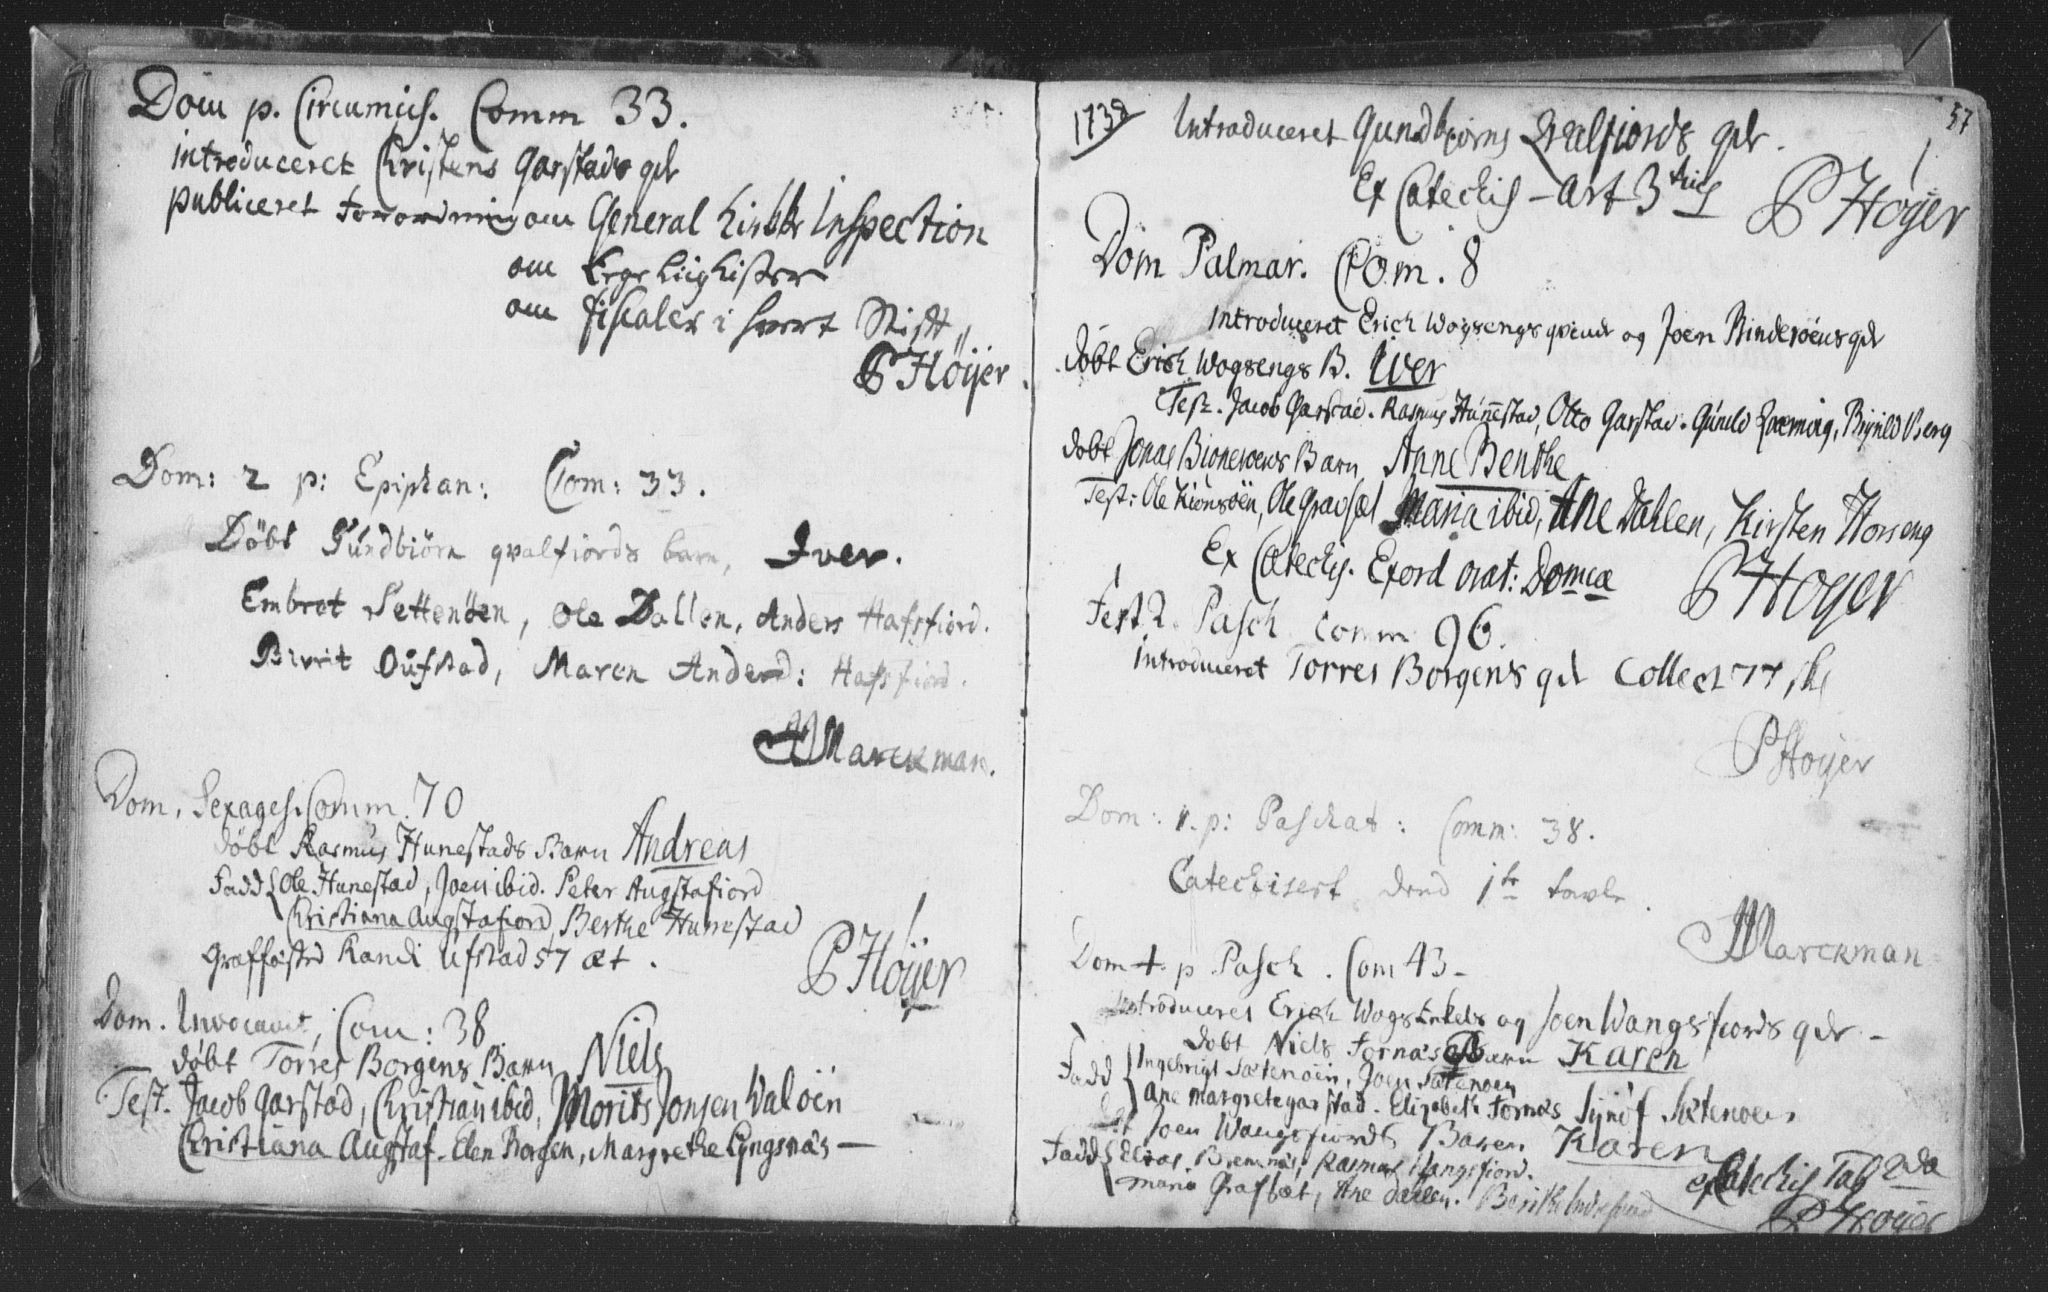 Dom p. Circumcis. Comm 33.
introduceret Christens Garstads qd
publiceret Forordning om General Kirke Inspection
om
om fiscaler i hvert Stift
P Höijer
Dom: 2 p: Epiphan: Com: 33.
Döbt Gundbiörn qvalfiords barn, Iver.
Embret Settenöen, Ole Dallen, Anders Hafsfiord.
Birrit Oufstad, Maren Anders d: Hafsfiord.
Marckman.
Dom. Sexages. Comm. 70
döbt Rasmus Hunestads Barn Andreas
Fadd Ole Hunestad, Joen ibid. Peter Augstafiord
Christiana Augstafiord, Berthe Hunestad
Graffästed Randi Ufstad 57 æt.
P Höijer
Dom. Invocavit, Com: 38
döbt Torres Borgens Barn Niels
Test. Jacob Garstad, Christian ibid, Morits Jonsen Valöen
Christiana Augstaf. Elen Borgen, Margrethe Lyngsnäs —
57
1738 Introduceret Gundbiörns Qvalfiords qdr.
Ex Catechis — Art 3
P Höyer
Dom Palmar. Com. 8
Introduceret Erich Wogsengs qvinde og Joen Bindesöens qdr
döbt Erich Wogsengs B. Iver
Test. Jacob Garstad. Rasmus Hunnestad, Otto Garstad. Gunild Qværning, Brynild Berg
döbt Jonas Barn Anne Benthe
Test: Ole Kiönsöen, Ole Gravset Maria ibid, Ane Dahlen, Kirsten Horseng
Ex Catechis. Exord orat: Domcæ
P Höyer
Fest. 2. Pasch comm 96.
introduceret Torres Borgens qd Collect 77 sk
P Höyer
Dom: 1. p: Paschat: Comm: 38.
Catechisert dend 1te tavle.
Marckman
Dom 4. p. Pasch. Com 43 -
introduceret Erich og Joen Wangsfiords qdr -
döbt Niels Fornæs Barn Karen
Fadd Ingebrigt Sætenöen, Joen Sætenöen
Ane Margrete Garstad. Elizabeth Fornæs Synöf Sætenöen
Joen Wangsfiords Baren Karen
Fadd Elias Bremnäs, Rasmus Wangsfiord.
Maria Grafsæt, Ane Dahlen. Berith
ex Catechis Tab 2da
P Höyer